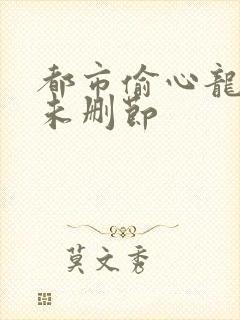 都市偷心龍
未删節
莫文秀